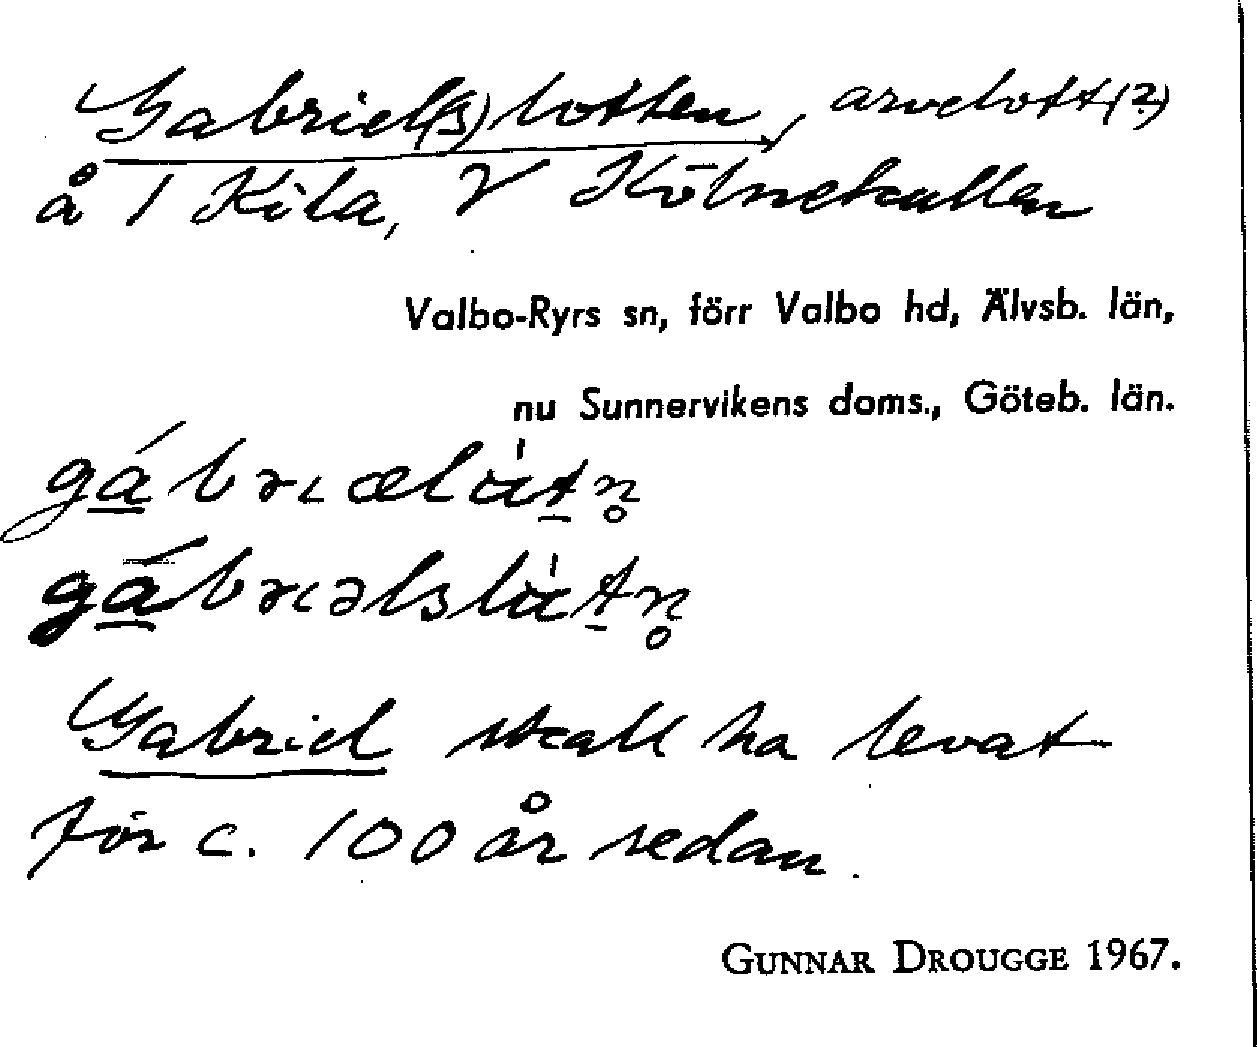 Gabriel(s)lotten, arvelott(?)
å 1 Kila, V Kölnekullen
Valbo-Ryrs sn, förr Valbo hd, Älvsb. län,
nu Sunnervikens doms., Göteb. län.
Gabriel skall ha levat
för c. 100 år sedan.
GUNNAR DROUGGE 1967.